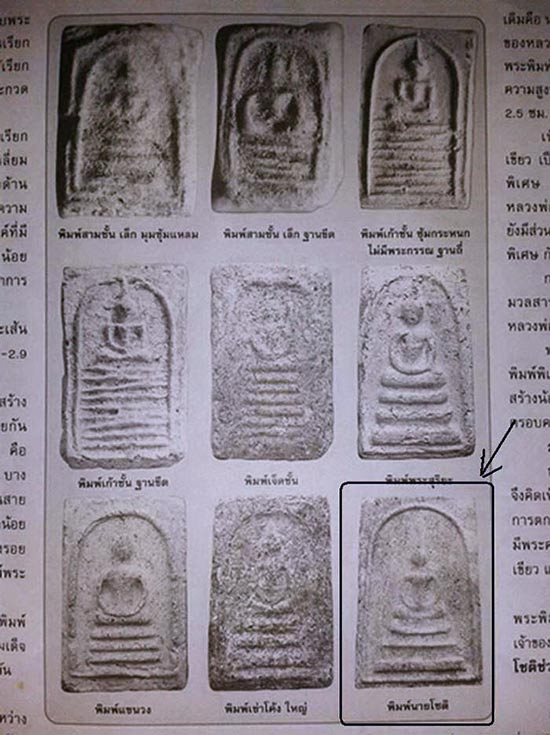 พิมพ์สามชั้น เล็ก มุมซุ้มแหลม
พิมพ์สามชั้น เล็ก ฐานขีด
พิมพ์เก้าชั้น ซุ้มกระหนก
ไม่มีพระกรรณ ฐานถี่
พิมพ์เก้าชั้น ฐานขีด
พิมพ์เจ็ดชั้น
พิมพ์พระสุริยะ
พิมพ์แขนวง
พิมพ์เข่าโค้ง ใหญ่
พิมพ์นายโชติ
เรียก
กวด
เรียก
เหลี่ยม
ด้าน
ความ
ที่มี
น้อย
อาการ
เส้น
-2.9
สร้าง
ยกัน
คือ
บาง
นสาย
น้อย
รอย
พระ
พิมพ์
เดิมคือ
ของหลว
พระพิมพ์
ความสูง
2.5 ซม.
เขียว เป็
พิเศษ
หลวงพ่อ
ยังมีส่วน
พิเศษ
มวลสา
หลวงพ่อ
พิมพ์พิเ
สร้างนั
กรอบค
จึงคิดเ
การตก
มีพระค
เขียว แ
พระพิม
เจ้าของ
โชติช่ว